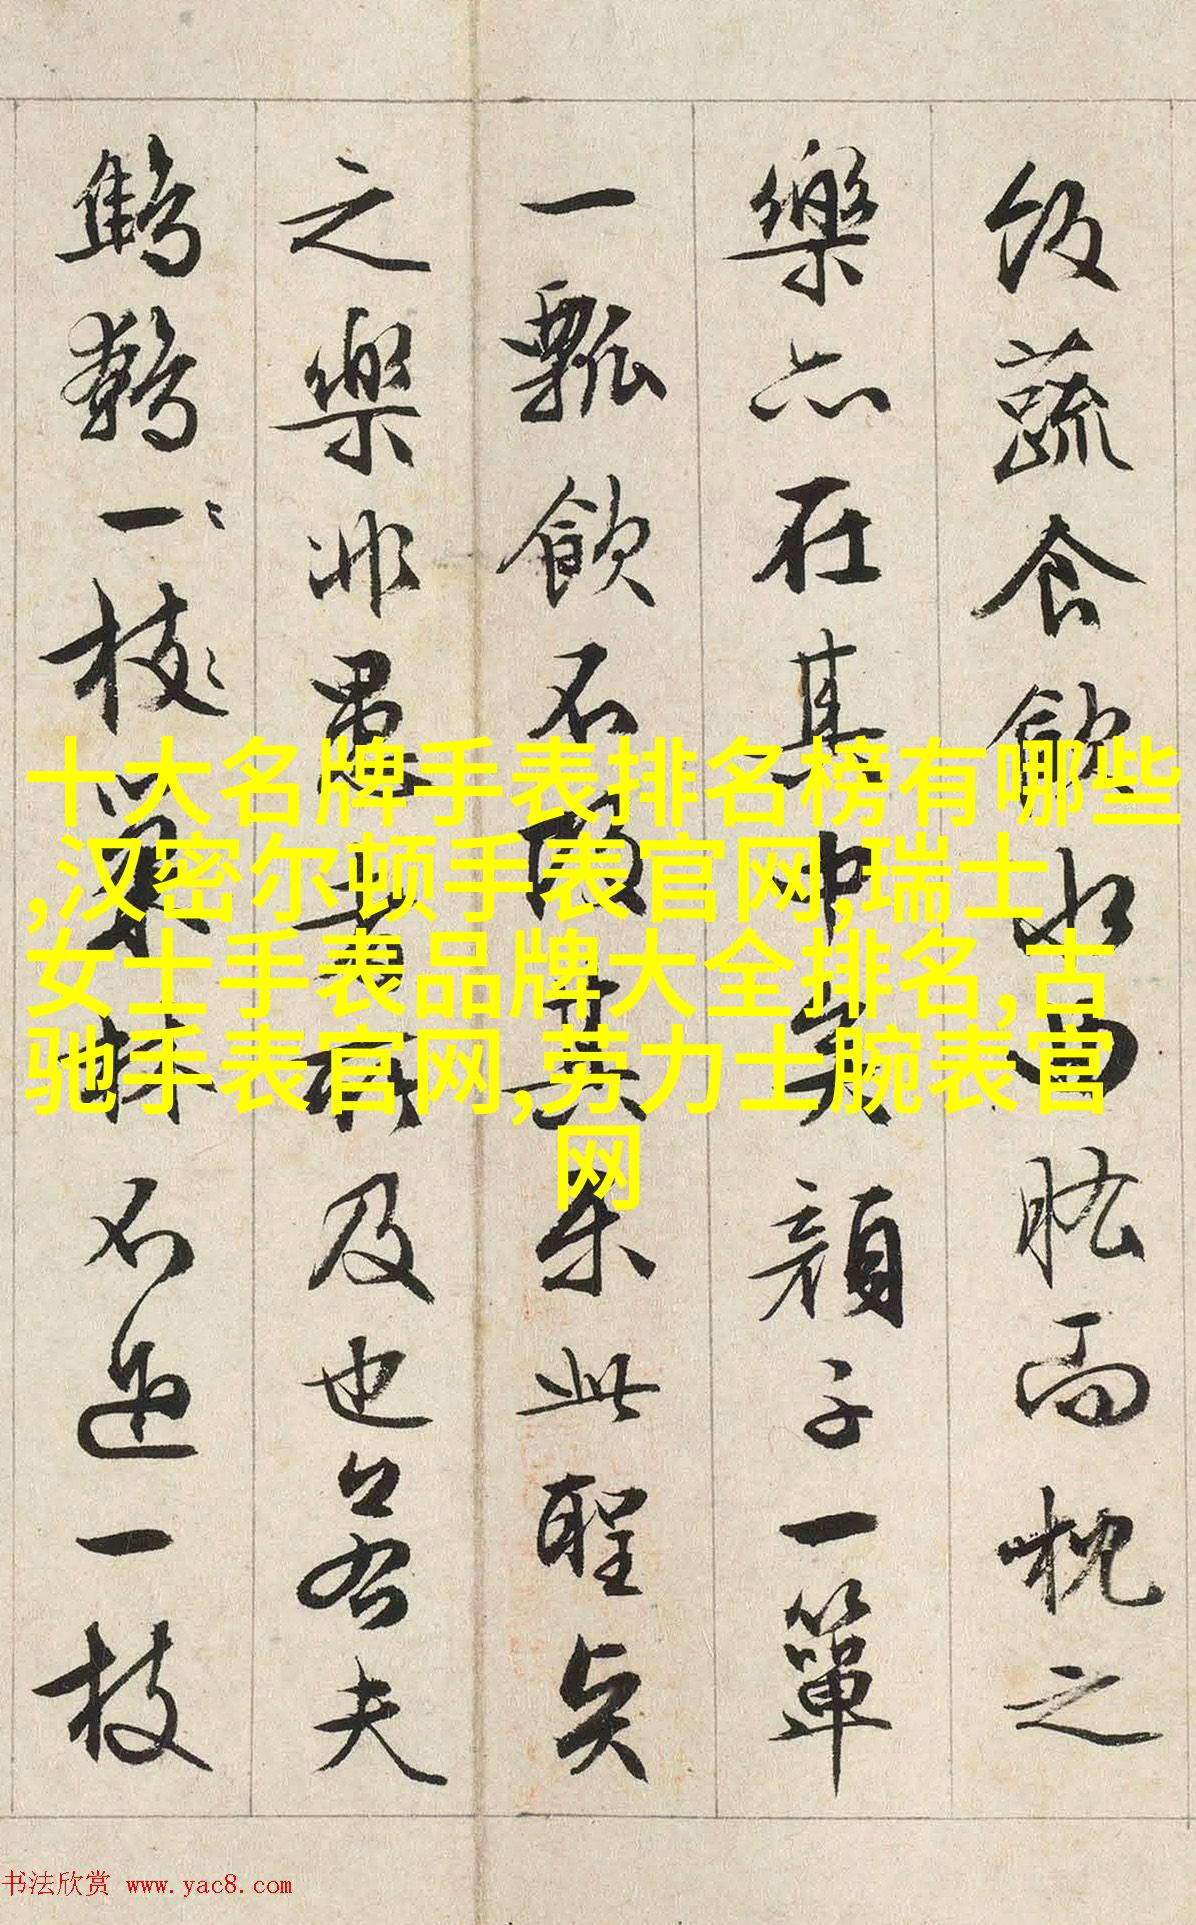 飯蔬食飲水曲肱而枕之
樂亦在其中矣顏子一簞
一瓢飲不改其乐此聖賢
之樂非愚者所及也若夫
鷦鷯一枝巢林不過一枝
十大名牌手表排名榜有哪些
,汉密尔顿手表官网,瑞士
女士手表品牌大全排名,古
驰手表官网,劳力士腕表官
网
书法欣赏 www.yac8.com